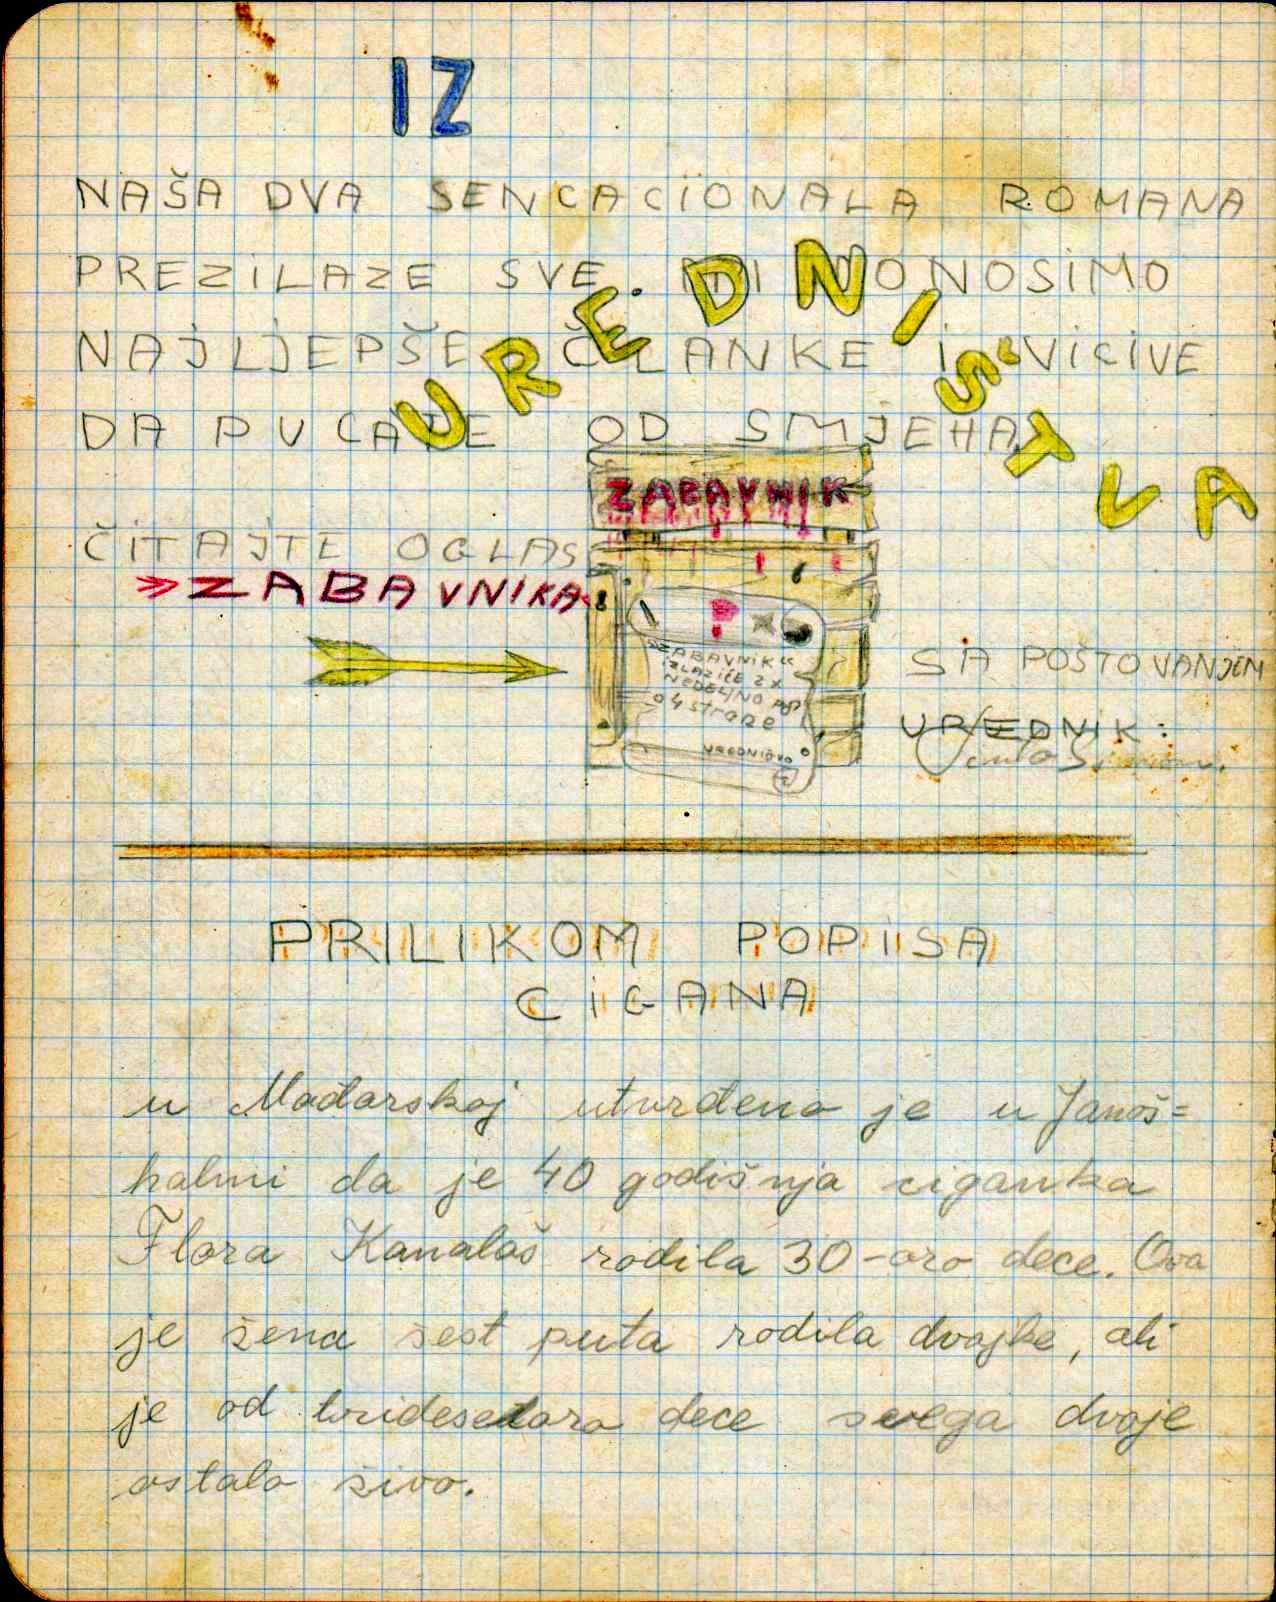 IZ
UREDNIŠTVA
NAŠA DVA SENCACIONALA ROMANA
PREZILAZE SVE. MI DONOSIMO
NAJLJEPŠE ČLANKE I VICIVE
DA PUCATE OD SMJEHA
ČITAJTE OGLAS
»ZABAVNIKA«
ZABAVNIK
?
»ZABAVNIK«
IZLAZIĆE 2X
NEDELJNO NA
4 STRANE
UREDNIŠTVO
SA POŠTOVANJEM
UREDNIK:
PRILIKOM POPISA
CIGANA
u Mađarskoj utvrđeno je u Janoš=
halmi da je 40 godišnja ciganka
Flora Kanalaš rodila 30-oro dece. Ova
je žena šest puta rodila dvojke, ali
je od tridesetoro dece svega dvoje
ostalo živo.